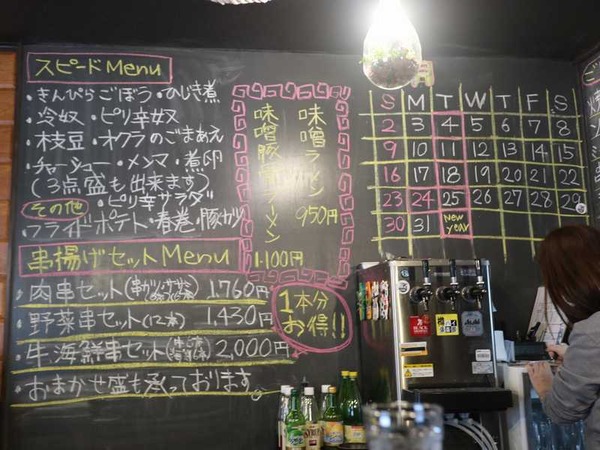 スピードMenu
・きんぴらごぼう・ひじき煮
・冷奴・ピリ辛奴
・枝豆・オクラのごまあえ
・チャーシュー・メンマ・煮卵
(3点盛も出来ます)
その他・ピリ辛サラダ
・フライドポテト・春巻・豚カツ
串揚げセットMenu
・肉串セット 1,760円
・野菜串セット 1,430円
・牛海鮮串セット 2,000円
・おまかせ盛も承っております。
味噌ラーメン
950円
味噌豚骨ラーメン
1,100円
1本分
お得!!
S M T W T F S
2 3 4 5 6 7 8
9 10 11 12 13 14 15
16 17 18 19 20 21 22
23 24 25 26 27 28 29
30 31 New year
BLACK
Asahi